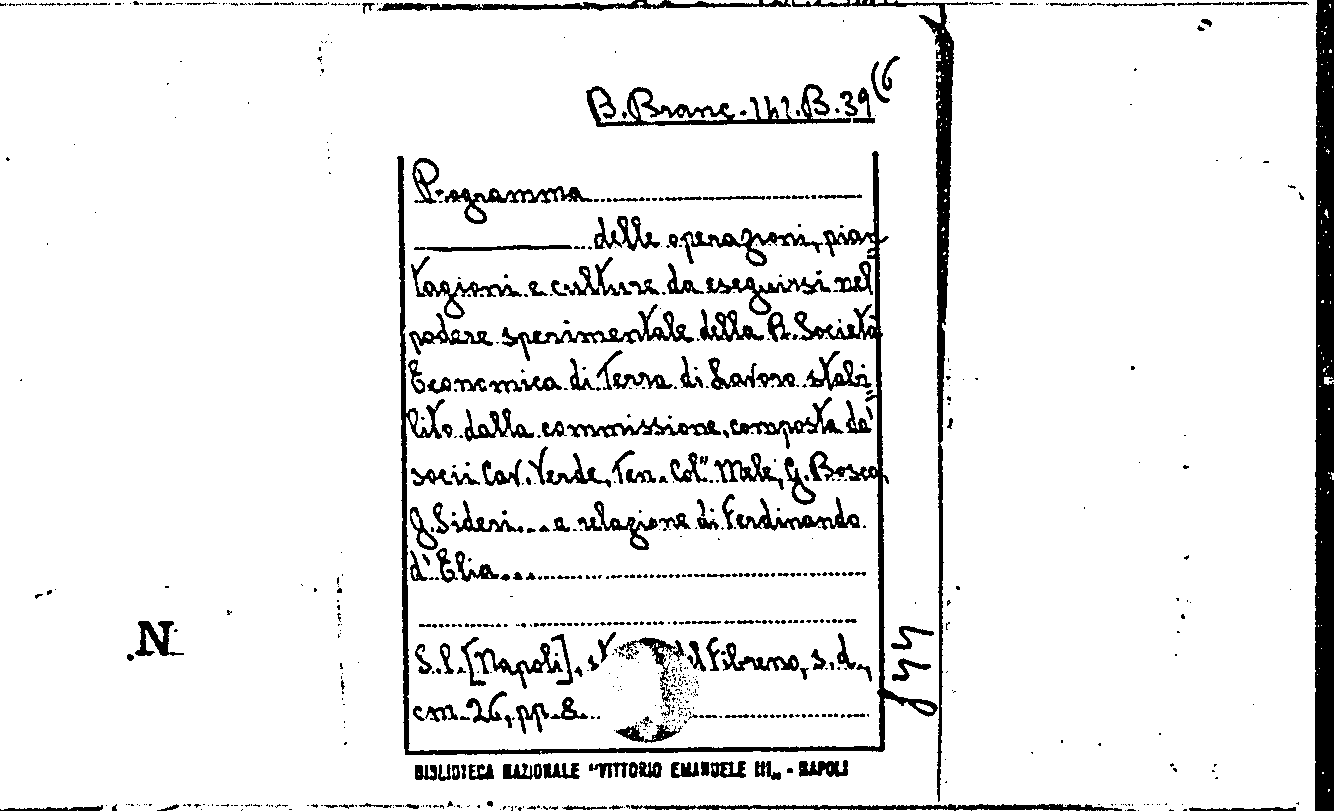 B. Branc. 141. B. 39 (6
Programma
delle operazioni, pian=
tagioni e culture da eseguirsi nel
podere sperimentale della R. Società
Economica di Terra di Lavoro stabi=
lito dalla commissione, composta da'
socii Cav. Verde, Ten. Col." Mele, G. Bosco,
G. Sideri... e relazione di Ferdinando
d'Elia...
S.l. [Napoli], del Fibreno, s.d.,
cm. 26, pp. 8.
N
BIBLIOTECA NAZIONALE "VITTORIO EMANUELE III„ - NAPOLI